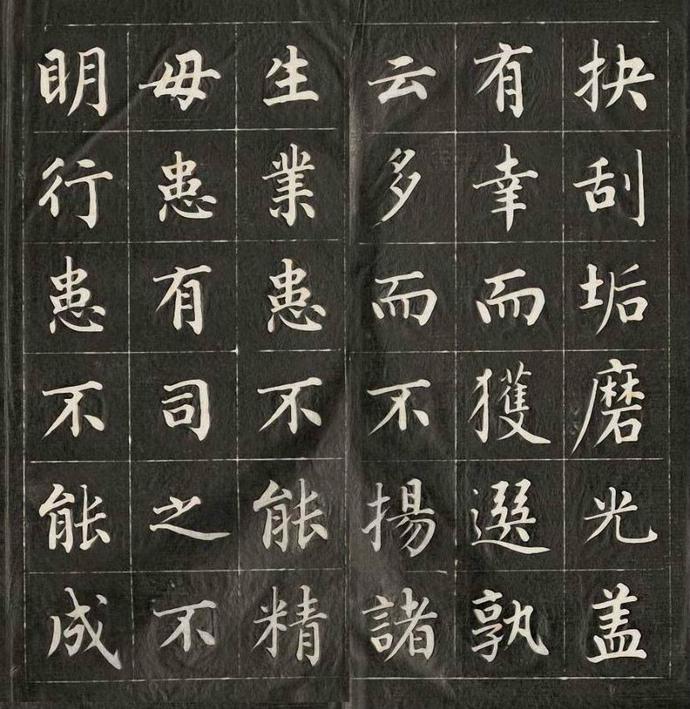 抉刮垢磨光盖
有幸而獲選孰
云多而不揚諸
生業患不能精
毋患有司之不
明行患不能成